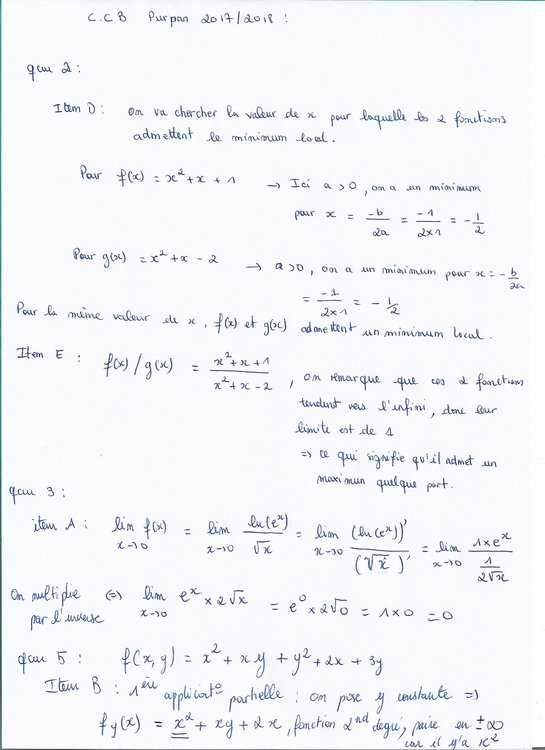 C.C.B Purpan 2017/2018 :
qcm 2 :
Item D : On va chercher la valeur de x pour laquelle les 2 fonctions
admettent le minimum local.
Pour f(x) = x² + x + 1 → Ici a > 0, on a un minimum
pour x = -b/2a = -1/2×1 = -1/2
Pour g(x) = x² + x - 2 → a > 0, on a un minimum pour x = -b/2a
= -1/2×1 = -1/2
Pour la même valeur de x, f(x) et g(x) admettent un minimum local.
Item E : f(x)/g(x) = x²+x+1/x²+x-2, on remarque que ces 2 fonctions
tendent vers l'infini, donc leur
limite est de 1
⇒ ce qui signifie qu'il admet un
maximum quelque part.
qcm 3 :
item A : lim x→0 f(x) = lim x→0 ln(eˣ)/√x = lim x→0 (ln(eˣ))'/(√x)' = lim x→0 1×eˣ/1/2√x
On multiplie par l'inverse ⇔ lim x→0 eˣ × 2√x = e⁰ × 2√0 = 1×0 = 0
qcm 5 : f(x,y) = x² + xy + y² + 2x + 3y
Item B : 1ère applicat° partielle : on pose y constante ⇒
fy(x) = x² + xy + 2x, fonction 2nd degré, paire en ±∞
car il y'a x²